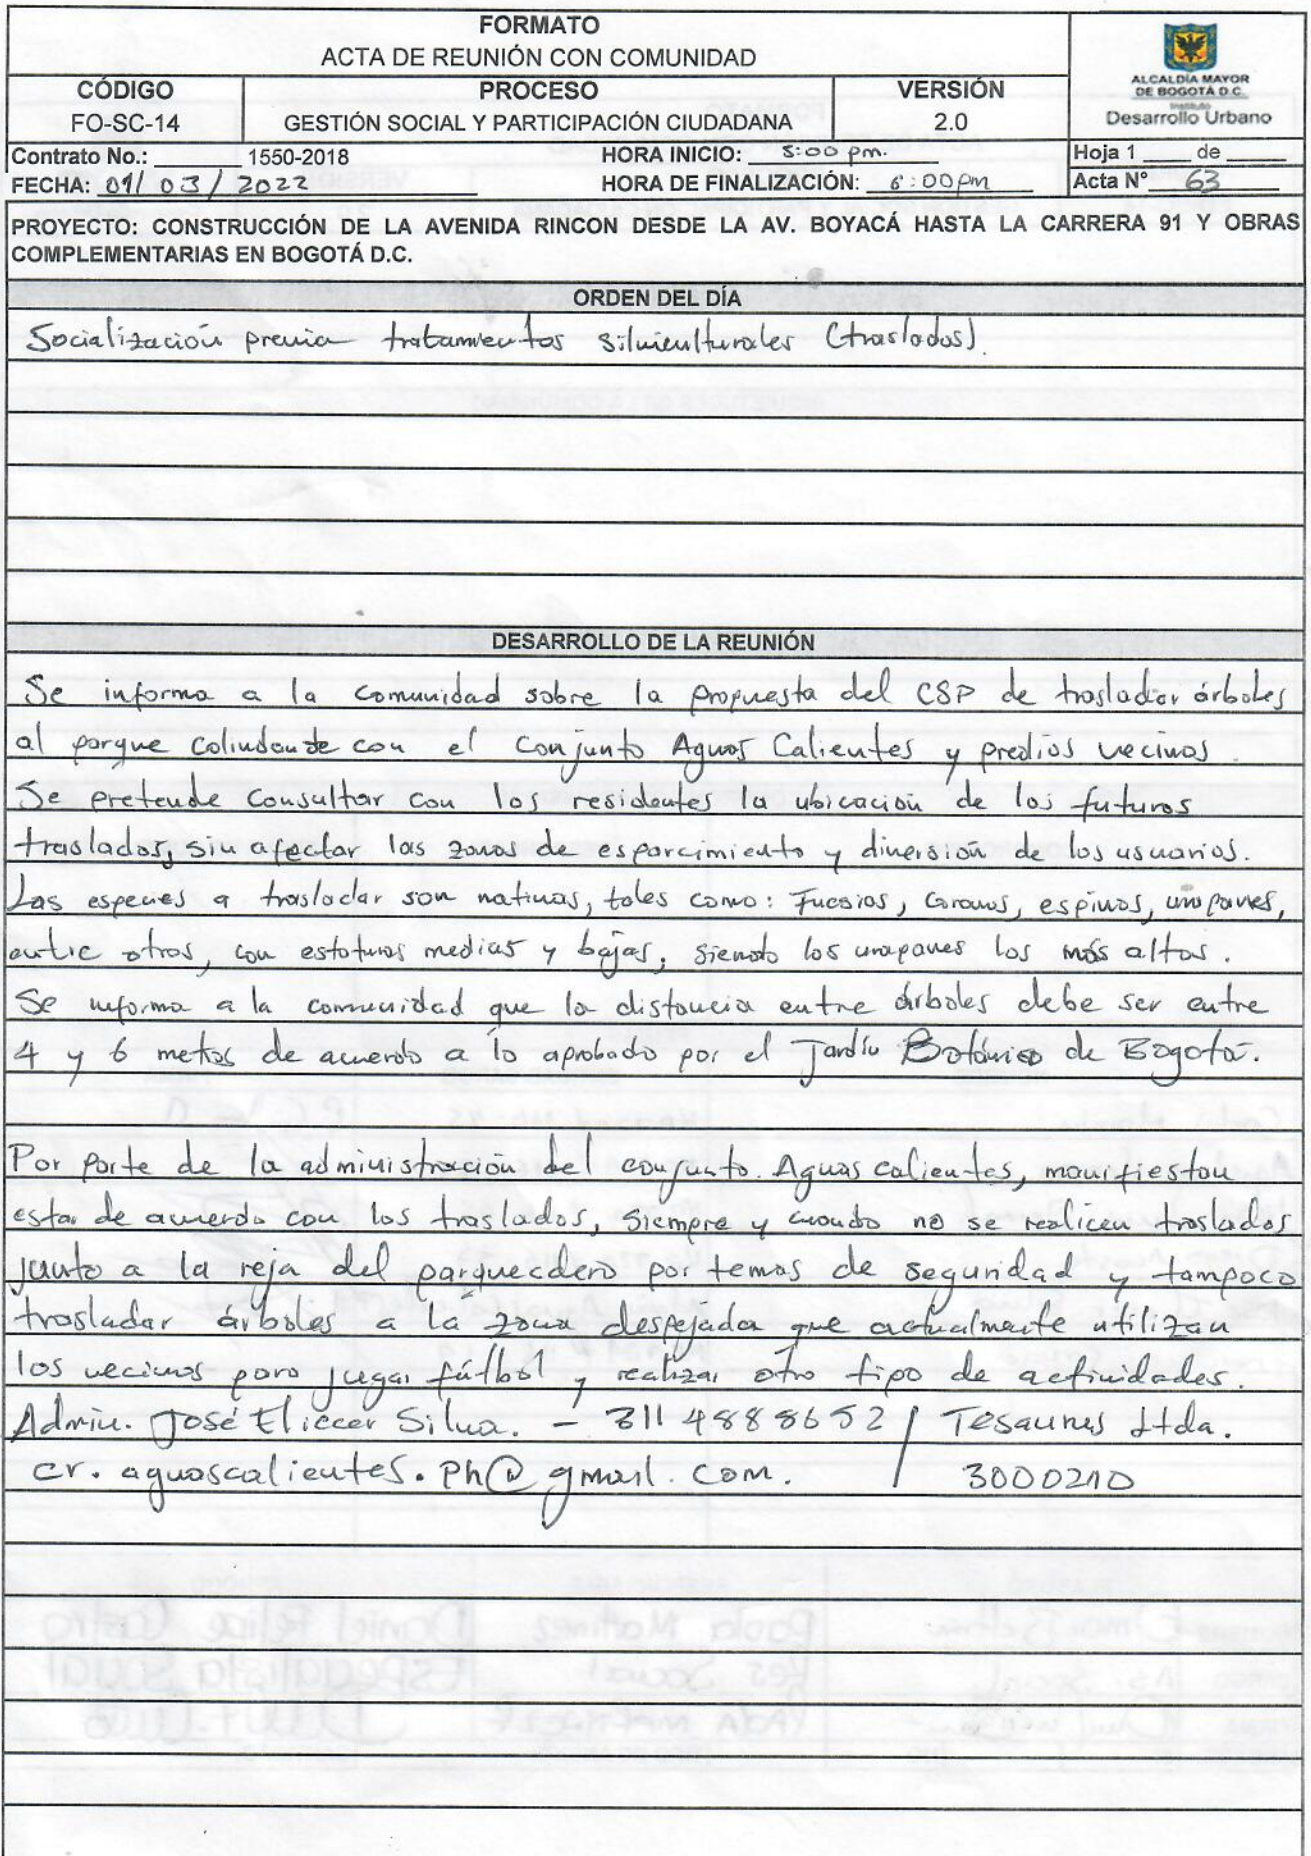 FORMATO
ACTA DE REUNIÓN CON COMUNIDAD
CÓDIGO
FO-SC-14
PROCESO
GESTIÓN SOCIAL Y PARTICIPACIÓN CIUDADANA
VERSIÓN
2.0
ALCALDÍA MAYOR
DE BOGOTÁ D.C.
Instituto
Desarrollo Urbano
Contrato No.: 1550-2018 HORA INICIO: 5:00 pm. Hoja 1 ____ de ____
FECHA: 01/03/2022 HORA DE FINALIZACIÓN: 6:00pm Acta N° 63
PROYECTO: CONSTRUCCIÓN DE LA AVENIDA RINCON DESDE LA AV. BOYACÁ HASTA LA CARRERA 91 Y OBRAS
COMPLEMENTARIAS EN BOGOTÁ D.C.
ORDEN DEL DÍA
Socialización previa tratamientos silviculturales (traslados).
DESARROLLO DE LA REUNIÓN
Se informa a la comunidad sobre la propuesta del CSP de trasladar árboles
al parque colindante con el Conjunto Aguas Calientes y predios vecinos.
Se pretende consultar con los residentes la ubicación de los futuros
traslados, sin afectar las zonas de esparcimiento y diversión de los usuarios.
Las especies a trasladar son nativas, tales como: Fucsias, espinos, urapanes,
entre otros, con estaturas medias y bajas, siendo los urapanes los más altos.
Se informa a la comunidad que la distancia entre árboles debe ser entre
4 y 6 metros de acuerdo a lo aprobado por el Jardín Botánico de Bogotá.
Por parte de la administración del conjunto Aguas calientes, manifiestan
estar de acuerdo con los traslados, siempre y cuando no se realicen traslados
junto a la reja del parqueadero por temas de seguridad y tampoco
trasladar árboles a la zona despejada que actualmente utilizan
los vecinos para jugar fútbol y realizar otro tipo de actividades.
Admin. José Eliecer Silva. - 311 4888652 / Tesaurus Ltda.
cr.aguascalientes.ph@gmail.com. / 3000210